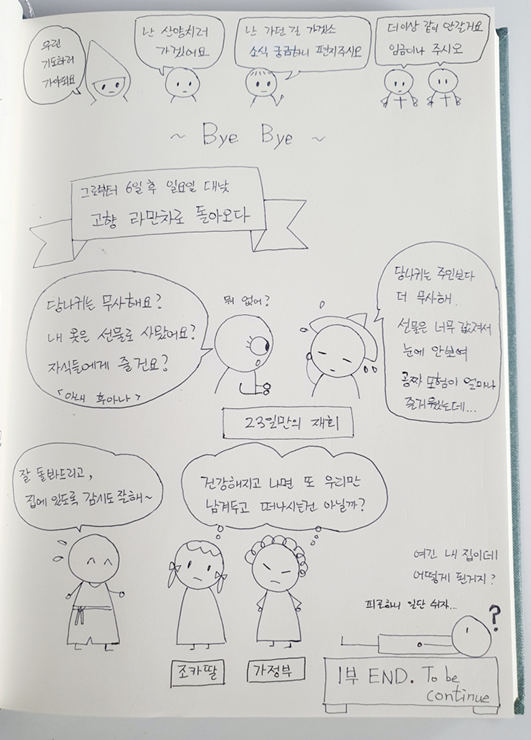 우린
기도하러
가야되요
난 산양치러
가겠어요
난 가던 길 가겠소
소식 궁금하니 편지주시오
더이상 같이 안갈거요
임금이나 주시오
~ Bye Bye ~
그로부터 6일 후 일요일 대낮
고향 라만차로 돌아오다
당나귀는 무사해요?
내 옷은 선물로 사왔어요?
자식들에게 줄건요?
<아내 후아나>
뭐 없어?
당나귀는 주인보다
더 무사해.
선물은 너무 값져서
눈에 안보여
공짜 모험이 얼마나
즐거웠는데...
23일만의 재회
잘 돌봐드리고,
집에 있도록 감시도 잘해~
건강해지고 나면 또 우리만
남겨두고 떠나시는건 아닐까?
조카딸
가정부
여긴 내 집이데
어떻게 된거지?
피로하니 일단 쉬자...
?
1부 END. To be
continue